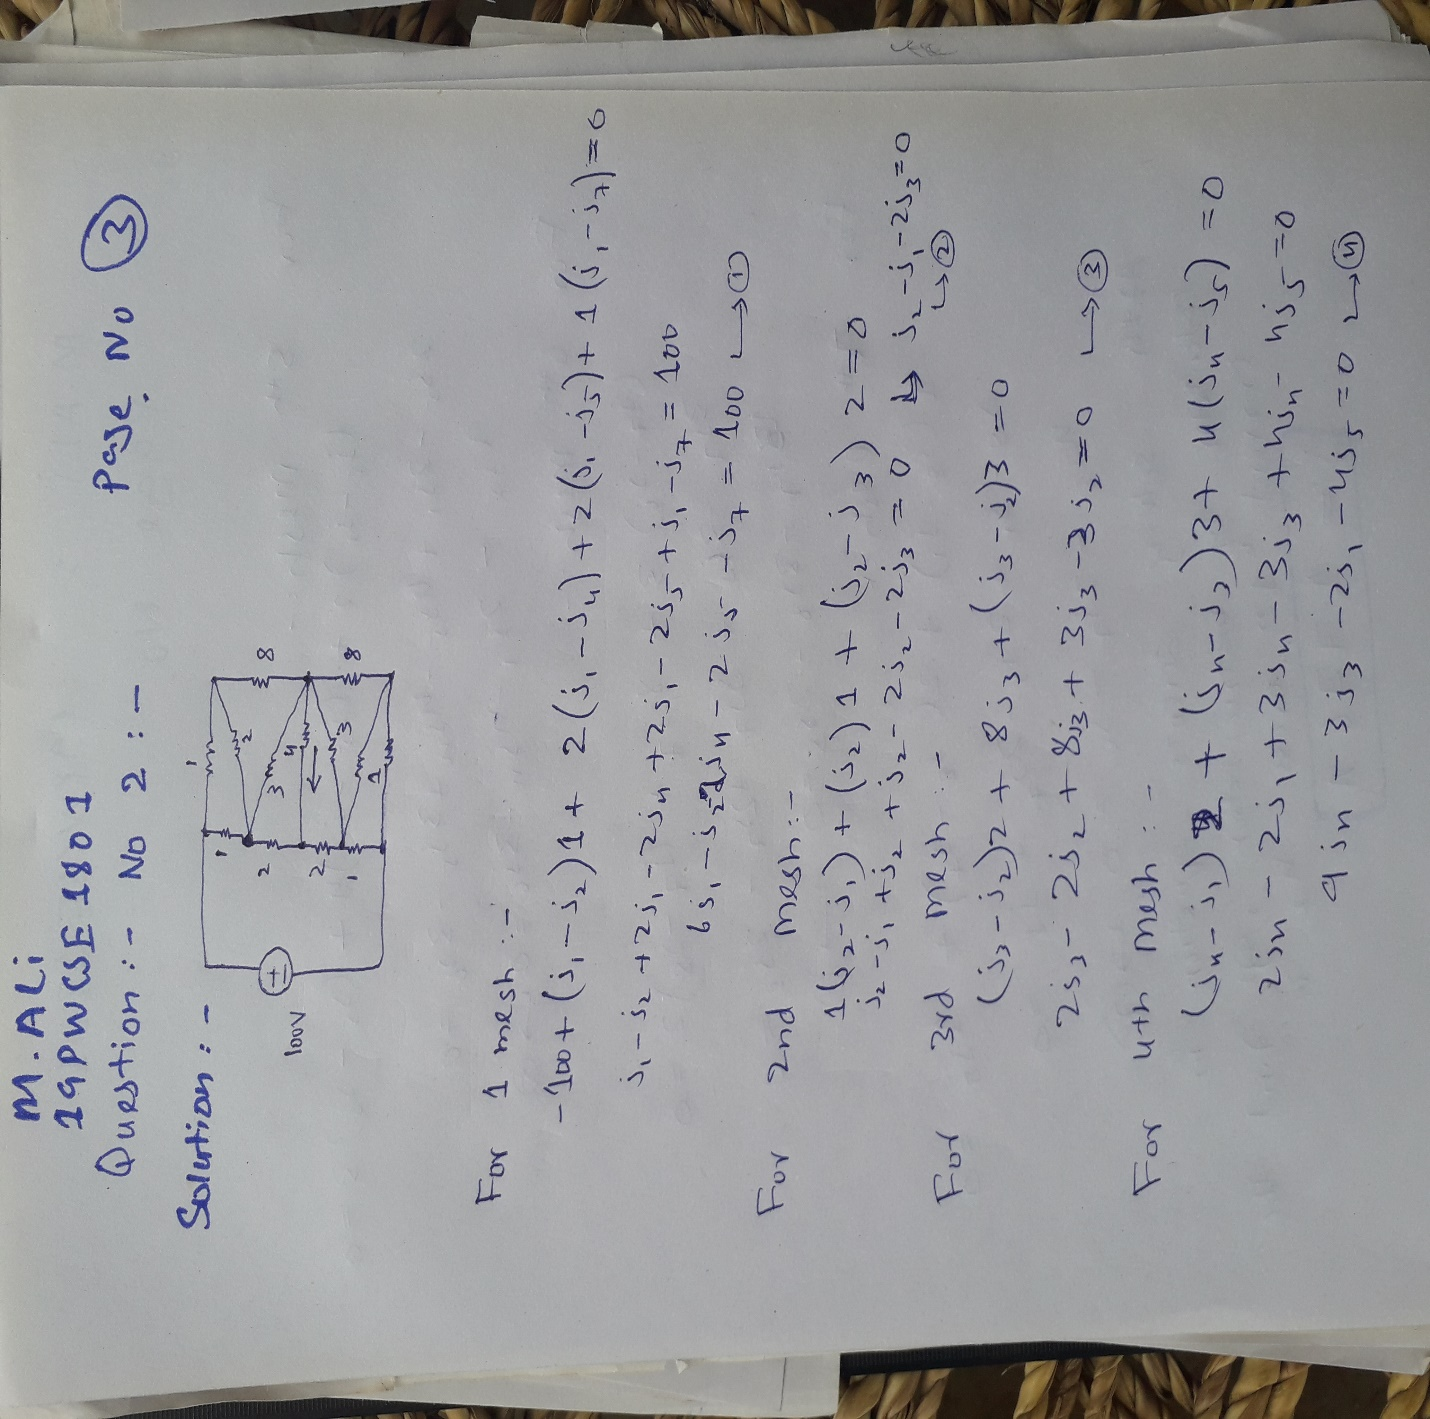 M. ALi
19PWCSE1801
Page. No 3
Question:- No 2:-
Solution:-
100V
1
2
8
1
3
4
2
2
3
8
1
2
For 1 mesh:-
-100+(i₁-i₂)1+ 2(i₁-i₄)+2(i₁-i₅)+1(i₁-i₇)=0
i₁-i₂+2i₁-2i₄+2i₁-2i₅+i₁-i₇=100
6i₁-i₂-2i₄-2i₅-i₇=100 ↳①
For 2nd mesh:-
1(i₂-i₁)+(i₂)1+(i₂-i₃)2=0
i₂-i₁+i₂+i₂-2i₂-2i₃=0 ↳ i₂-i₁-2i₃=0
↳②
For 3rd mesh:-
(i₃-i₂)2+8i₃+(i₃-i₂)3=0
2i₃-2i₂+8i₃+3i₃-3i₂=0 ↳③
For 4th mesh:-
(i₄-i₁)2+(i₄-i₃)3+4(i₄-i₅)=0
2i₄-2i₁+3i₄-3i₃+4i₄-4i₅=0
9i₄-3i₃-2i₁-4i₅=0 ↳④